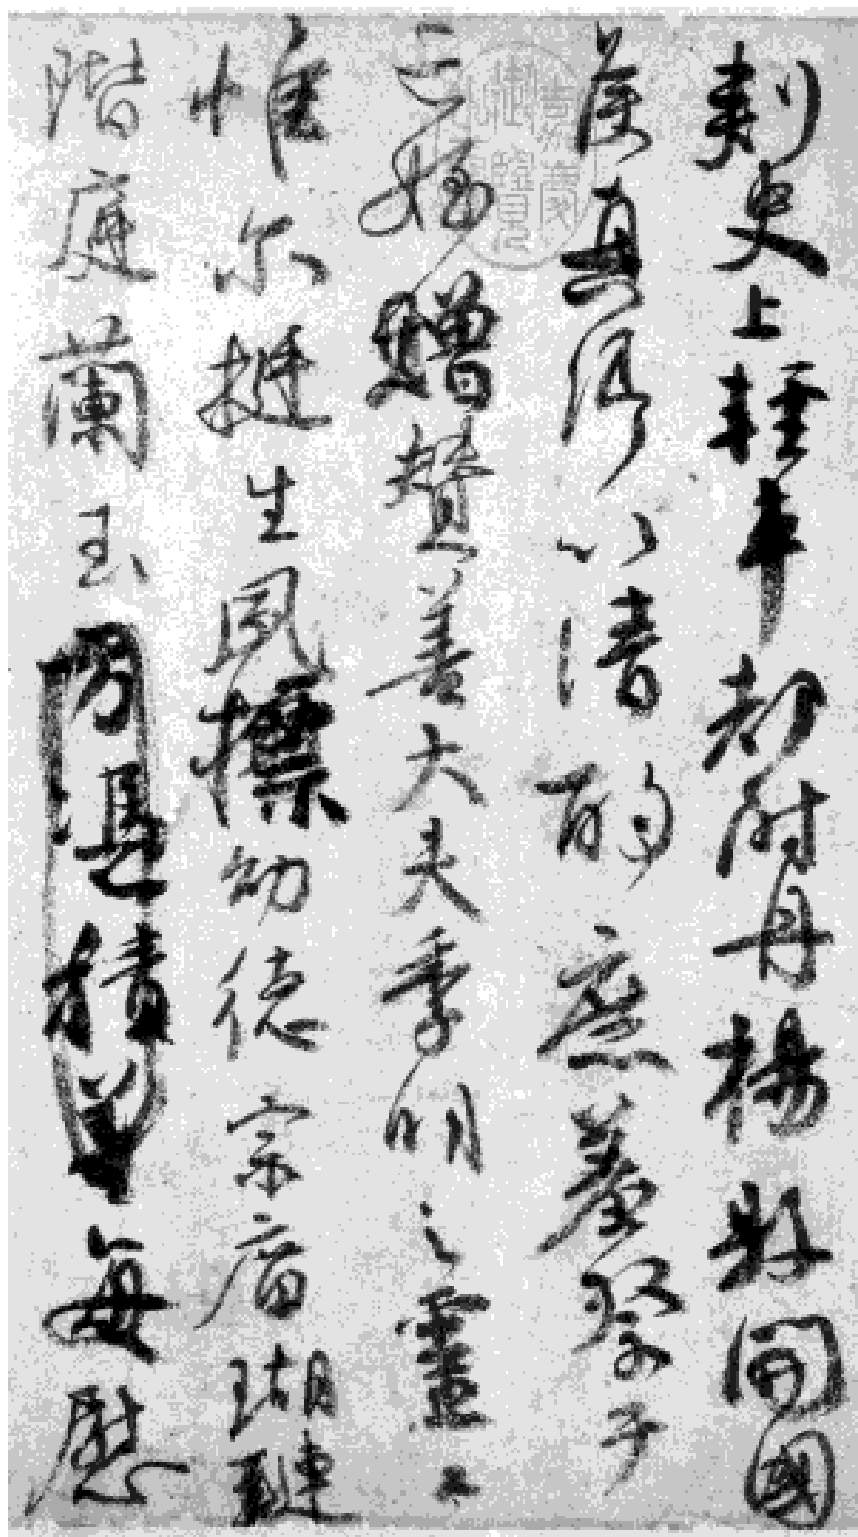 刺史上輕車都尉丹楊縣開國
侯真卿以清酌庶羞祭于
亡姪贈贊善大夫季明之靈曰
惟尔挺生夙標幼德宗庿瑚璉
階庭蘭玉方憑積善每慰